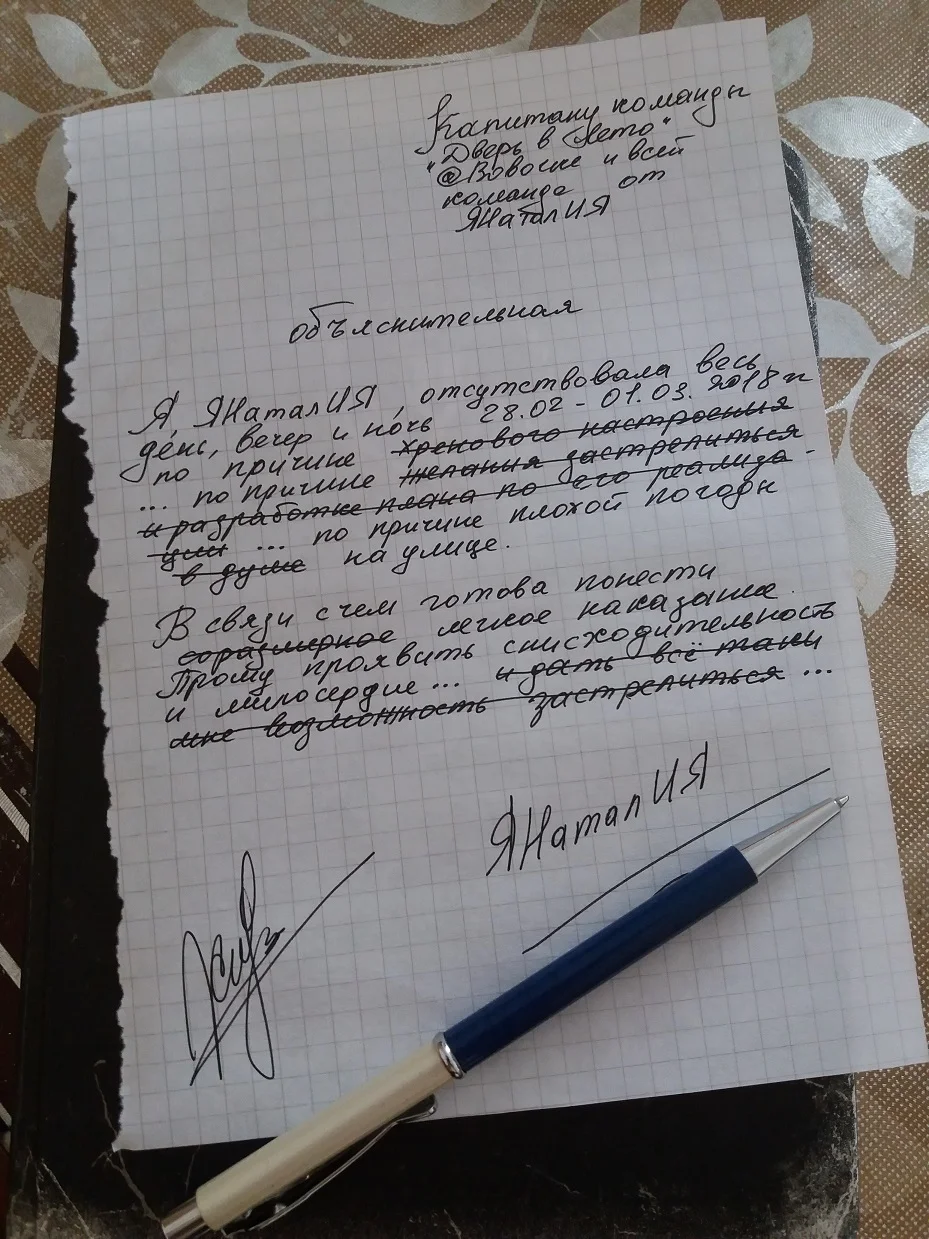 Капитану команды
"Дверь в Лето"
@Вовочке и всей
команде от
ЯНаталИЯ
объяснительная
Я, ЯНаталИЯ, отсутствовала весь
день, вечер и ночь 28.02 - 01.03.2018 г
по причине хренового настроения
... по причине желания застрелиться
и разработке плана по его реализа-
ции ... по причине плохой погоды
в думе на улице.
В связи с чем готова понести
соразмерное легкое наказание.
Прошу проявить снисходительность
и милосердие... и дать всё таки
мне возможность застрелиться ...
ЯНаталИЯ